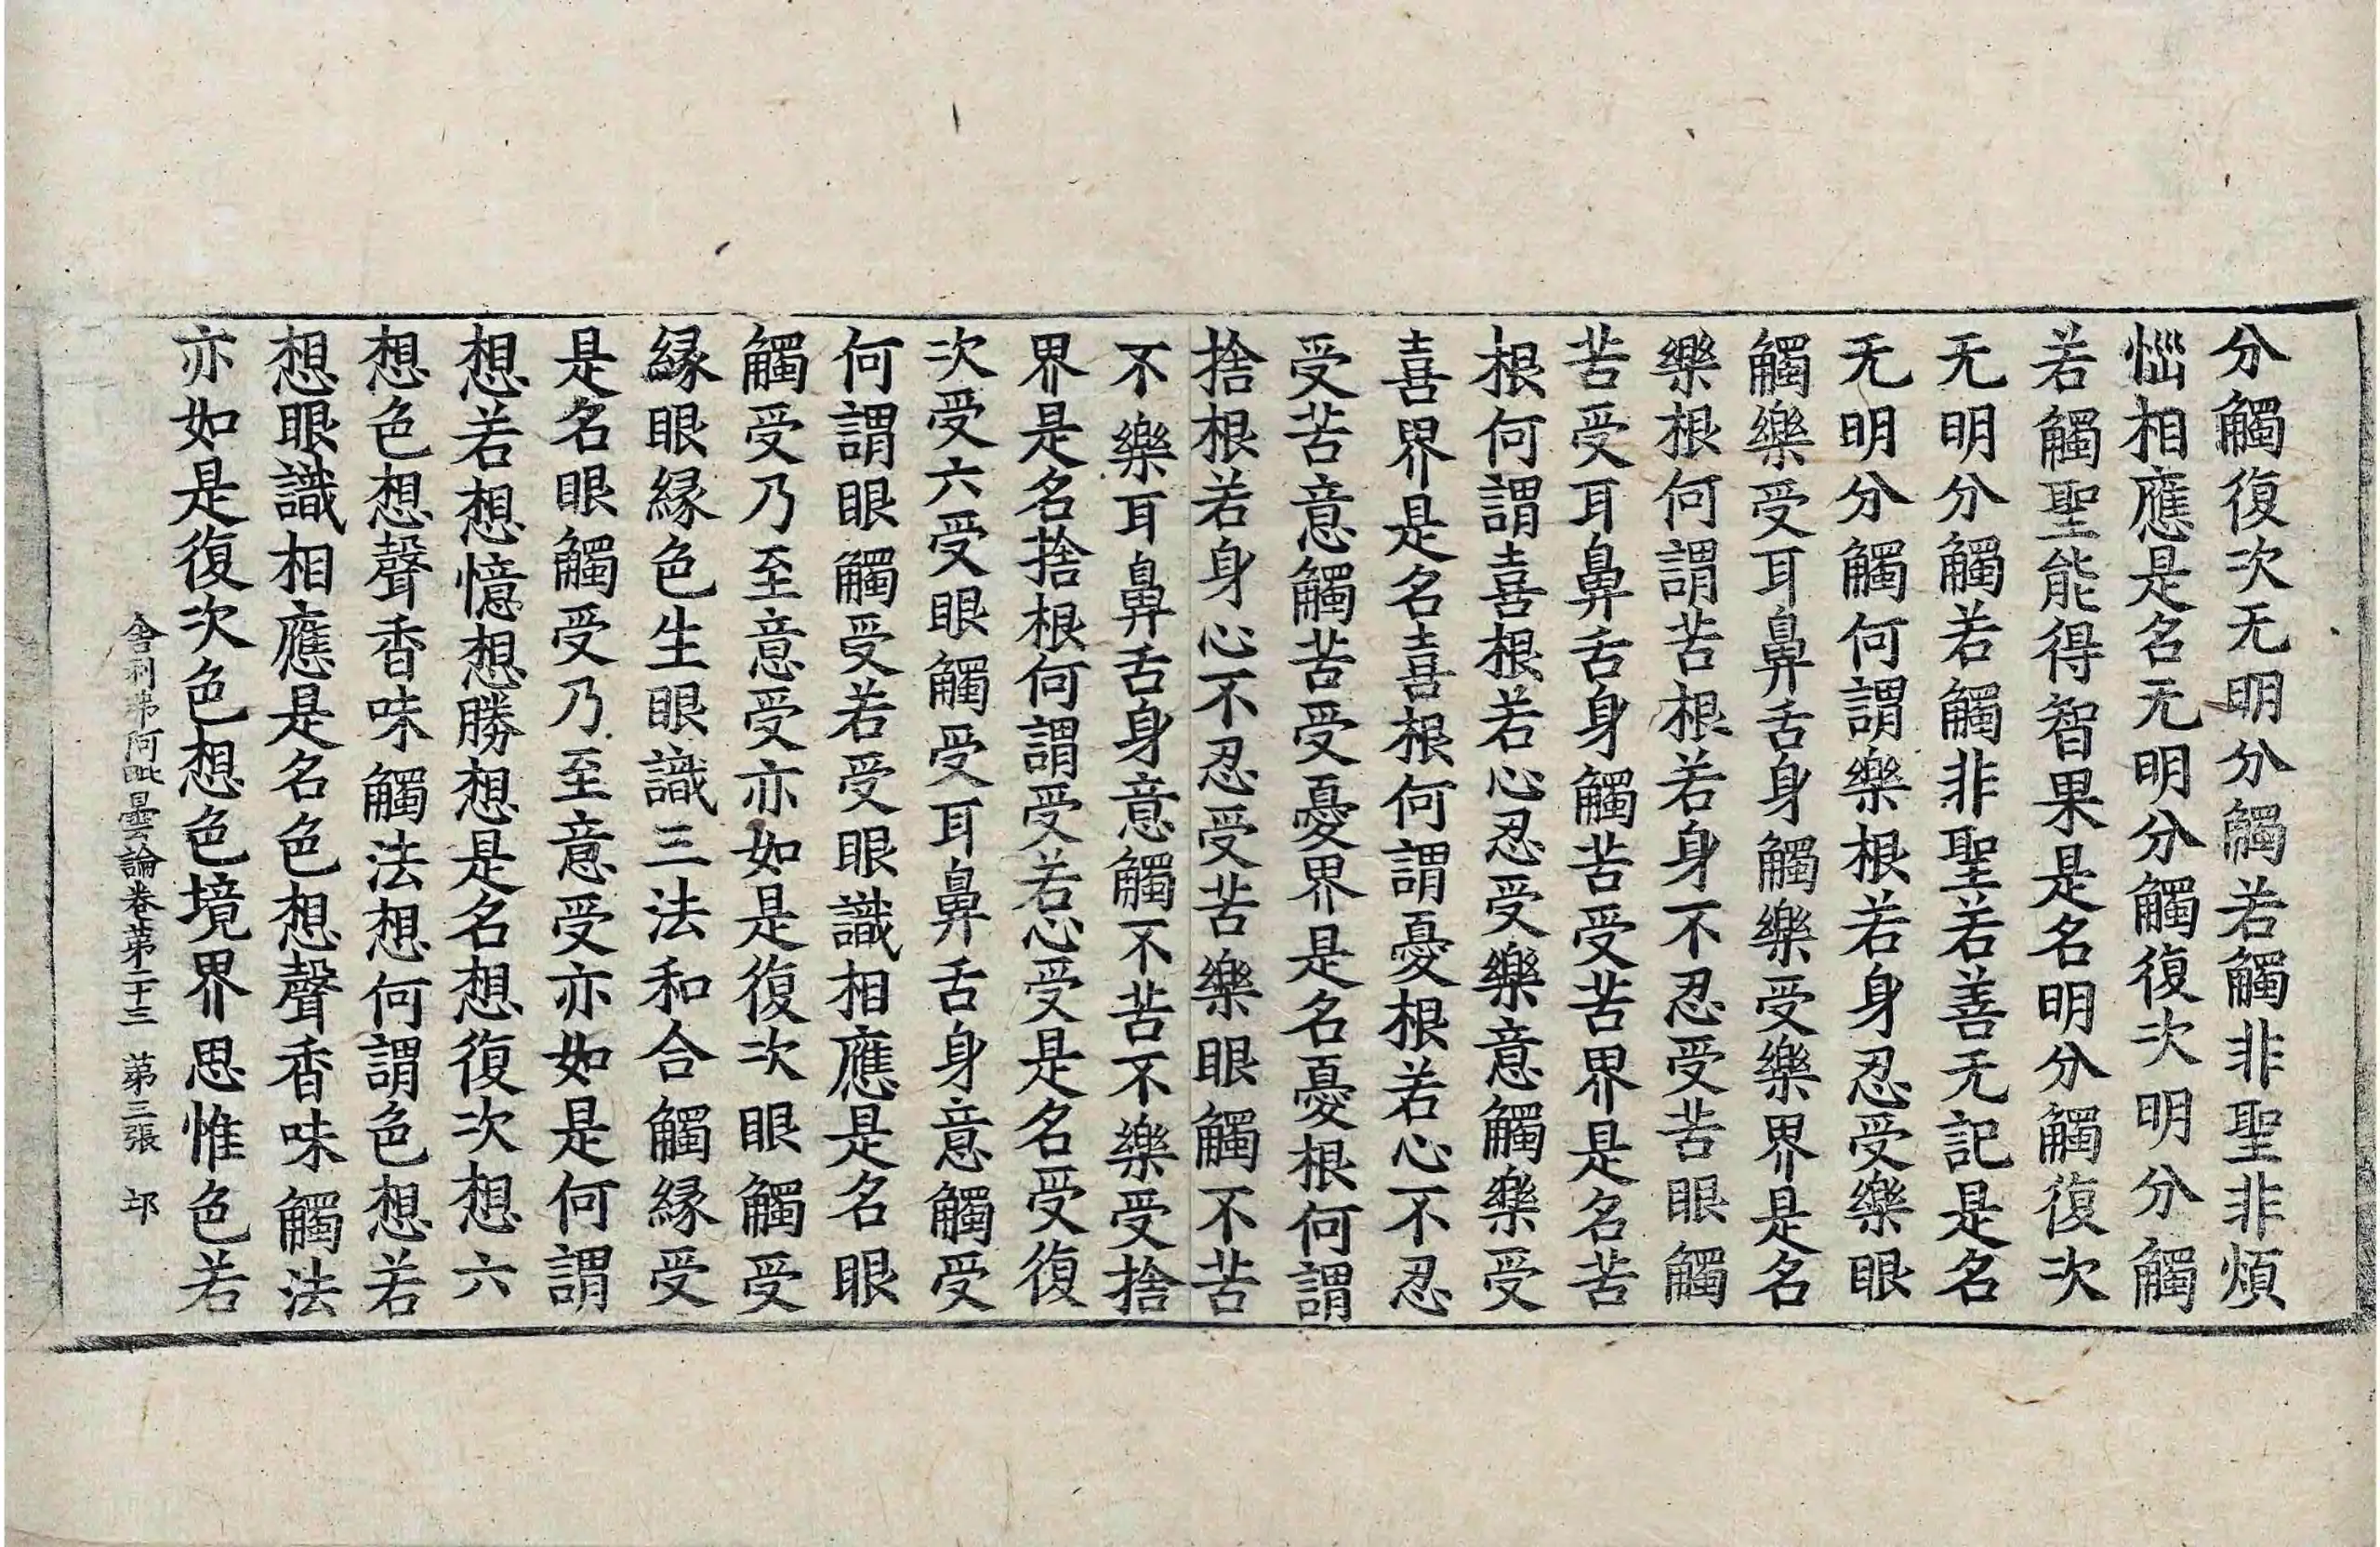 分觸復次无明分觸若觸非聖非煩
惱相應是名无明分觸復次明分觸
若觸聖能得智果是名明分觸復次
无明分觸若觸非聖若善无記是名
无明分觸何謂樂根若身忍受樂眼
觸樂受耳鼻舌身觸樂受樂界是名
樂根何謂苦根若身不忍受苦眼觸
苦受耳鼻舌身觸苦受苦界是名苦
根何謂喜根若心忍受樂意觸樂受
喜界是名喜根何謂憂根若心不忍
受苦意觸苦受憂界是名憂根何謂
捨根若身心不忍受苦樂眼觸不苦
不樂耳鼻舌身意觸不苦不樂受捨
界是名捨根何謂受若心受是名受復
次受六受眼觸受耳鼻舌身意觸受
何謂眼觸受若受眼識相應是名眼
觸受乃至意受亦如是復次眼觸受
縁眼縁色生眼識三法和合觸縁受
是名眼觸受乃至意受亦如是何謂
想若想憶想勝想是名想復次想六
想色想聲香味觸法想何謂色想若
想眼識相應是名色想聲香味觸法
亦如是復次色想色境界思惟色若
舍利弗阿毗曇論卷第二十三 第三張 邙